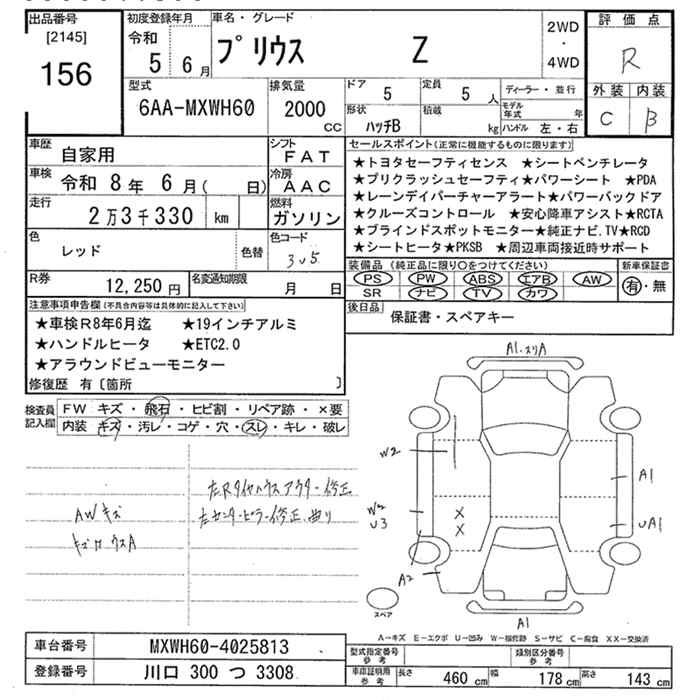 出品番号
[2145]
156
初度登録年月
令和
5 6月
車名・グレード
プリウス Z
2WD
・
4WD
評価点
R
外装 内装
C B
型式
6AA-MXWH60
排気量
2000
CC
ドア
5
定員
5 人
形状
ハッチB
積載
kg
ディーラー・並行
モデル年式 年
ハンドル 左・右
車歴
自家用
シフト
FAT
車検
令和 8年 6月( 日)
冷房
AAC
走行
2万3千330 km
燃料
ガソリン
色
レッド
色替
色コード
3U5
R券
12,250円
名変通知期限
月 日
セールスポイント(正常に機能するものに限ります)
★トヨタセーフティセンス ★シートベンチレータ
★プリクラッシュセーフティ★パワーシート ★PDA
★レーンデイパーチャーアラート★パワーバックドア
★クルーズコントロール ★安心降車アシスト★RCTA
★ブラインドスポットモニター★純正ナビ.TV★RCD
★シートヒータ★PKSB ★周辺車両接近時サポート
装備品(純正品に限り○をつけてください)
PS PW ABS エアB AW
SR ナビ TV カワ
新車保証書
有・無
後日品
保証書・スペアキー
注意事項申告欄(不具合内容等は具体的に記入して下さい)
★車検R8年6月迄 ★19インチアルミ
★ハンドルヒータ ★ETC2.0
★アラウンドビューモニター
修復歴 有〔箇所 〕
検査員
記入欄
FW キズ・飛石・ヒビ割・リペア跡・×要
内装 キズ・汚レ・コゲ・穴・スレ・キレ・破レ
左Rタイヤハウスアウター修正
左センターピラー修正、曲り
AWキズ
A1.スリA
W2
W2
U3
A2
A1
UA1
A1
スペア
A−キズ E−エクボ U−凹み W−補修跡 S−サビ C−腐食 XX−交換済
車台番号
MXWH60-4025813
登録番号
川口 300 つ 3308
型式指定番号
参考
類別区分番号
参考
車庫証明用
参考
長さ 460 cm
幅 178 cm
高さ 143 cm